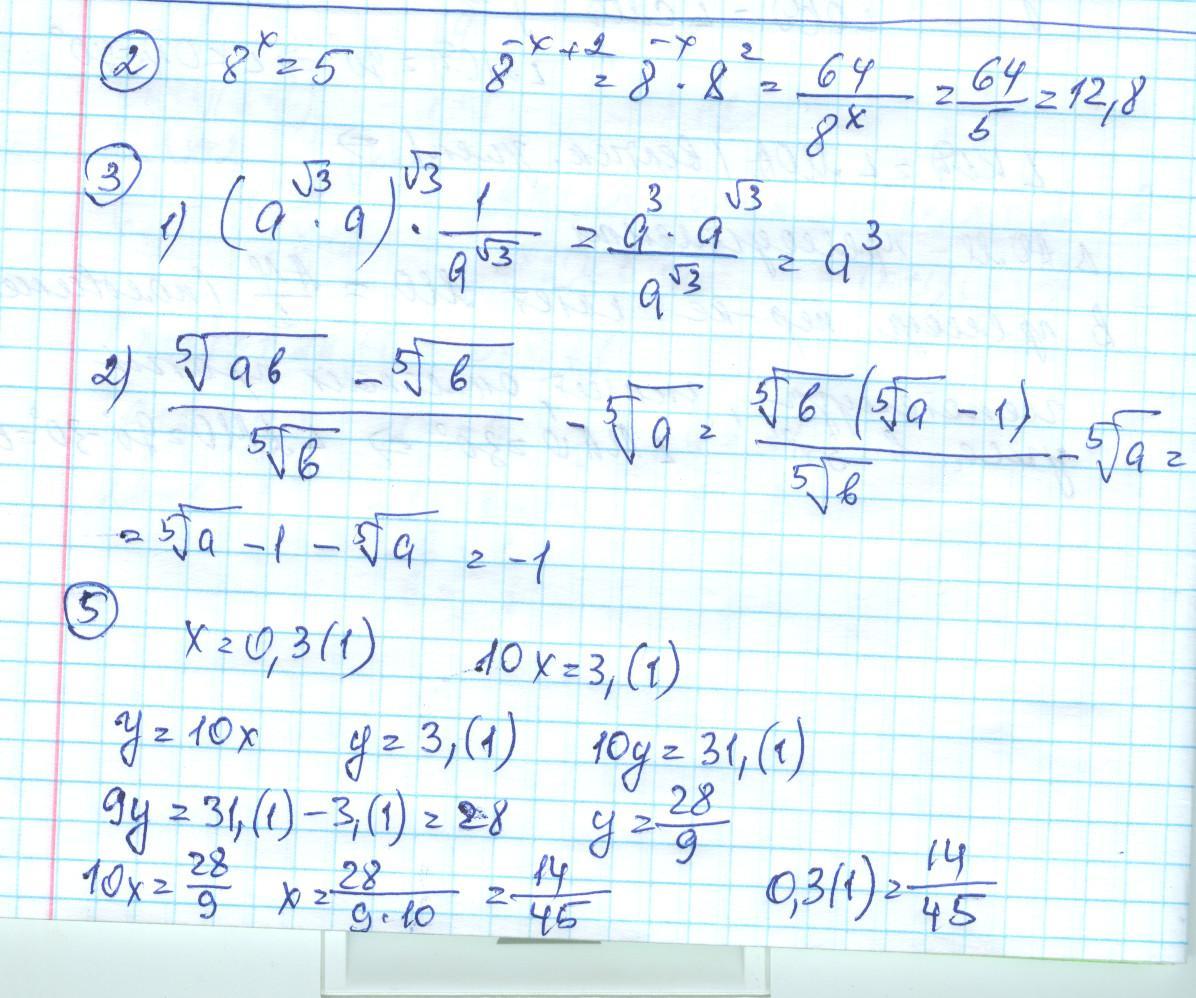 ② 8^x = 5 8^(-x+2) = 8^(-x) · 8^2 = 64/8^x = 64/5 = 12,8
③ 1) (a^√3 · a)^√3 · 1/a^√3 = (a^3 · a^√3)/a^√3 = a^3
2) (⁵√(ab) - ⁵√b)/⁵√b - ⁵√a = ⁵√b (⁵√a - 1)/⁵√b - ⁵√a =
= ⁵√a - 1 - ⁵√a = -1
⑤
x = 0,3(1) 10x = 3,(1)
y = 10x y = 3,(1) 10y = 31,(1)
9y = 31,(1) - 3,(1) = 28 y = 28/9
10x = 28/9 x = 28/(9·10) = 14/45 0,3(1) = 14/45